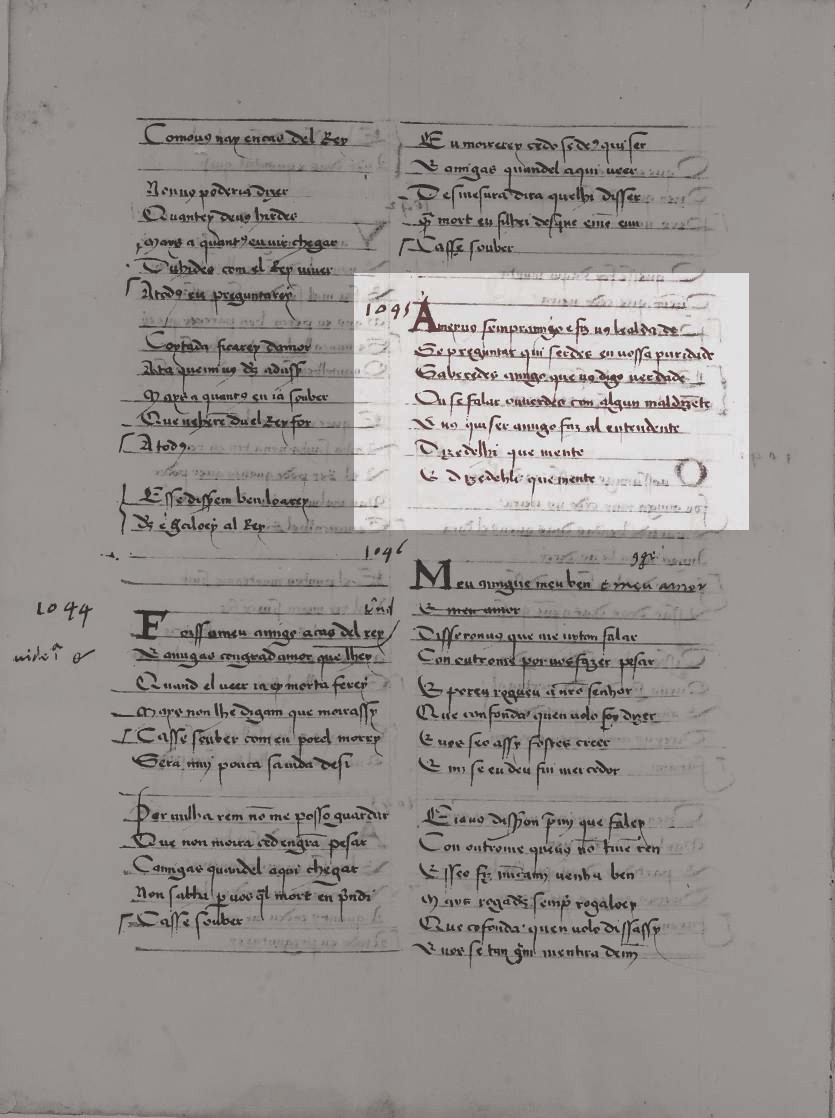 Comoug nax en cas del Rey
Nonuo poderia dizer
Quantey deuos birdes
Mays a quantꝯ eu vir chegar
Du hides com el Rey viuer
A todꝯ eu preguntarey
Coytada ficarey damor
Ata que mi uo dꝫ adussy
Mays a quantꝯ eu ia souber
Que uehere du el Rey for
A todꝯ
E sse dissem ben loarey
dꝫ e
al Rey
1044
vide
Foissomeu amigo a cas del rey
E amigas congrad amor que lhey
Quand el veer ia eu morta serey
Mays non lhe digam que moirassy
Ca sse souber com eu por el morey
Sera mui pouca sa uida desi
Por nulha rem nō me posso guardar
Que non moira ced en gra pesar
Camigas quand el aqui chegar
Non sabha ꝑ uos ql mort eu prendi
Ca sse souber
Eu moirerey cedo se deꝯ quiser
E amigas quand el aqui ueer
Desmesura dira quelhi disser
gm mort eu filhei des que eme eiui
Ca sse souber
1095
Ameyuo sempramigo e fꝫ uo lealdade
Se preguntar quiserdes en uossa puridade
Saberedes amigo que uo digo uerdade
Ou se falar ouuerdes con algun maldizēte
E uo quiser amigo faz al entendente
Dizedelhi que mente
E dizedelhi que mente
1096
Meu amigue meu ben e meu amor
E meu amor
Disseronuos que me uirom falar
Con outrome por uos fazer pesar
E poren rogueu a nr̃o senhor
Que confonda quen uolo foy dizer
E uos seo assy fostes creer
E mi se eu deu fui merecedor
E iauo disseron ꝑ mi que faley
Con outrome que uos nō tiue en ren
E sseo fꝫ nūcami uenha ben
Mays rogadꝫ sempr̃ rogaloey
Que cofonda quen uolo diss assy
E uos se tan grā mentira de mi